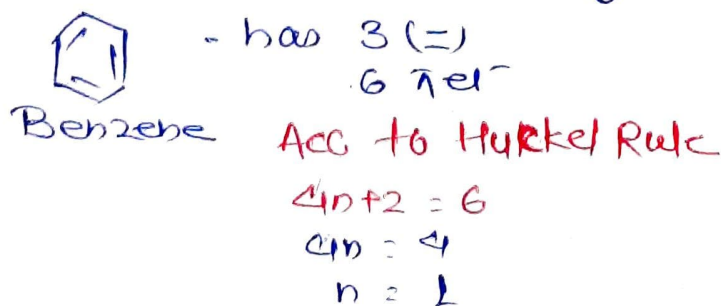 - has 3 (=)
6 πel⁻
Benzene
Acc to Huckel Rule
4n+2 = 6
4n = 4
n = 1